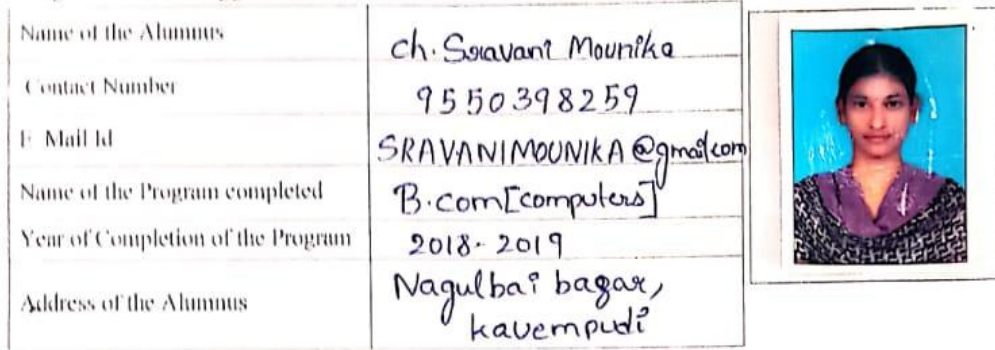 Name of the Alumnus
ch. Sravani Mounika
Contact Number
9550398259
E Mail Id
SRAVANIMOUNIKA@gmail.com
Name of the Program completed
B.com[computers]
Year of Completion of the Program
2018-2019
Address of the Alumnus
Nagulbai bagar,
kavempudi